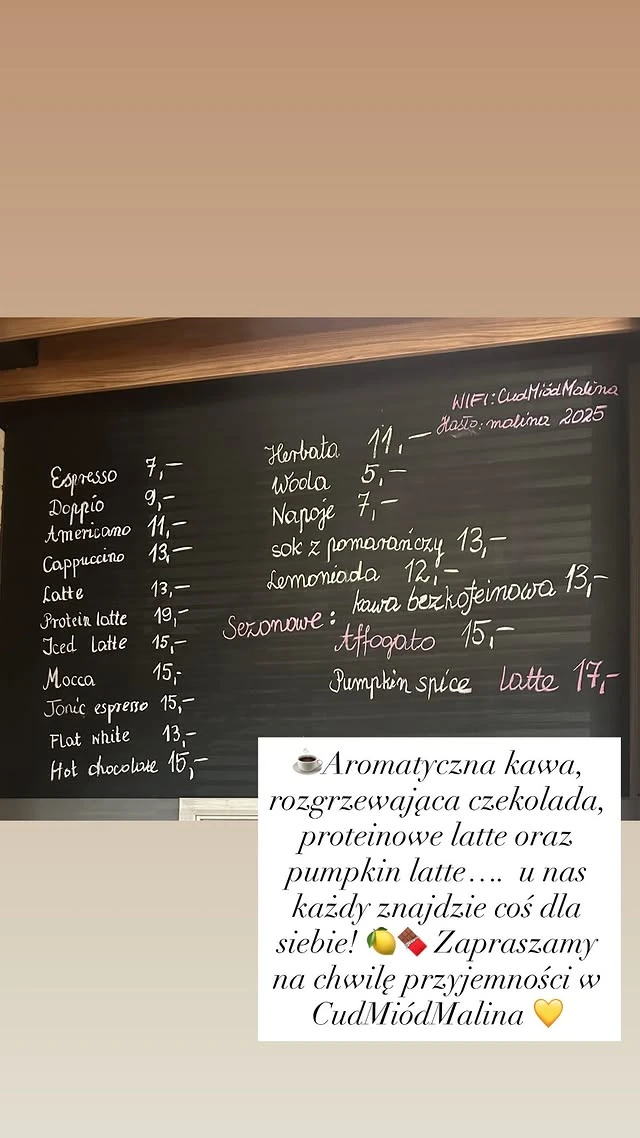 WIFI: CudMiódMalina
Hasło: malina 2025
Espresso 7,-
Doppio 9,-
Americano 11,-
Cappuccino 13,-
Latte 13,-
Protein latte 19,-
Iced latte 15,-
Mocca 15,-
Tonic espresso 15,-
Flat white 13,-
Hot chocolate 15,-
Herbata 11,-
Woda 5,-
Napoje 7,-
sok z pomarańczy 13,-
Lemoniada 12,-
kawa bezkofeinowa 13,-
Sezonowe:
Affogato 15,-
Pumpkin spice latte 17,-
☕Aromatyczna kawa,
rozgrzewająca czekolada,
proteinowe latte oraz
pumpkin latte…. u nas
każdy znajdzie coś dla
siebie! 🍋🍫 Zapraszamy
na chwilę przyjemności w
CudMiódMalina 💛